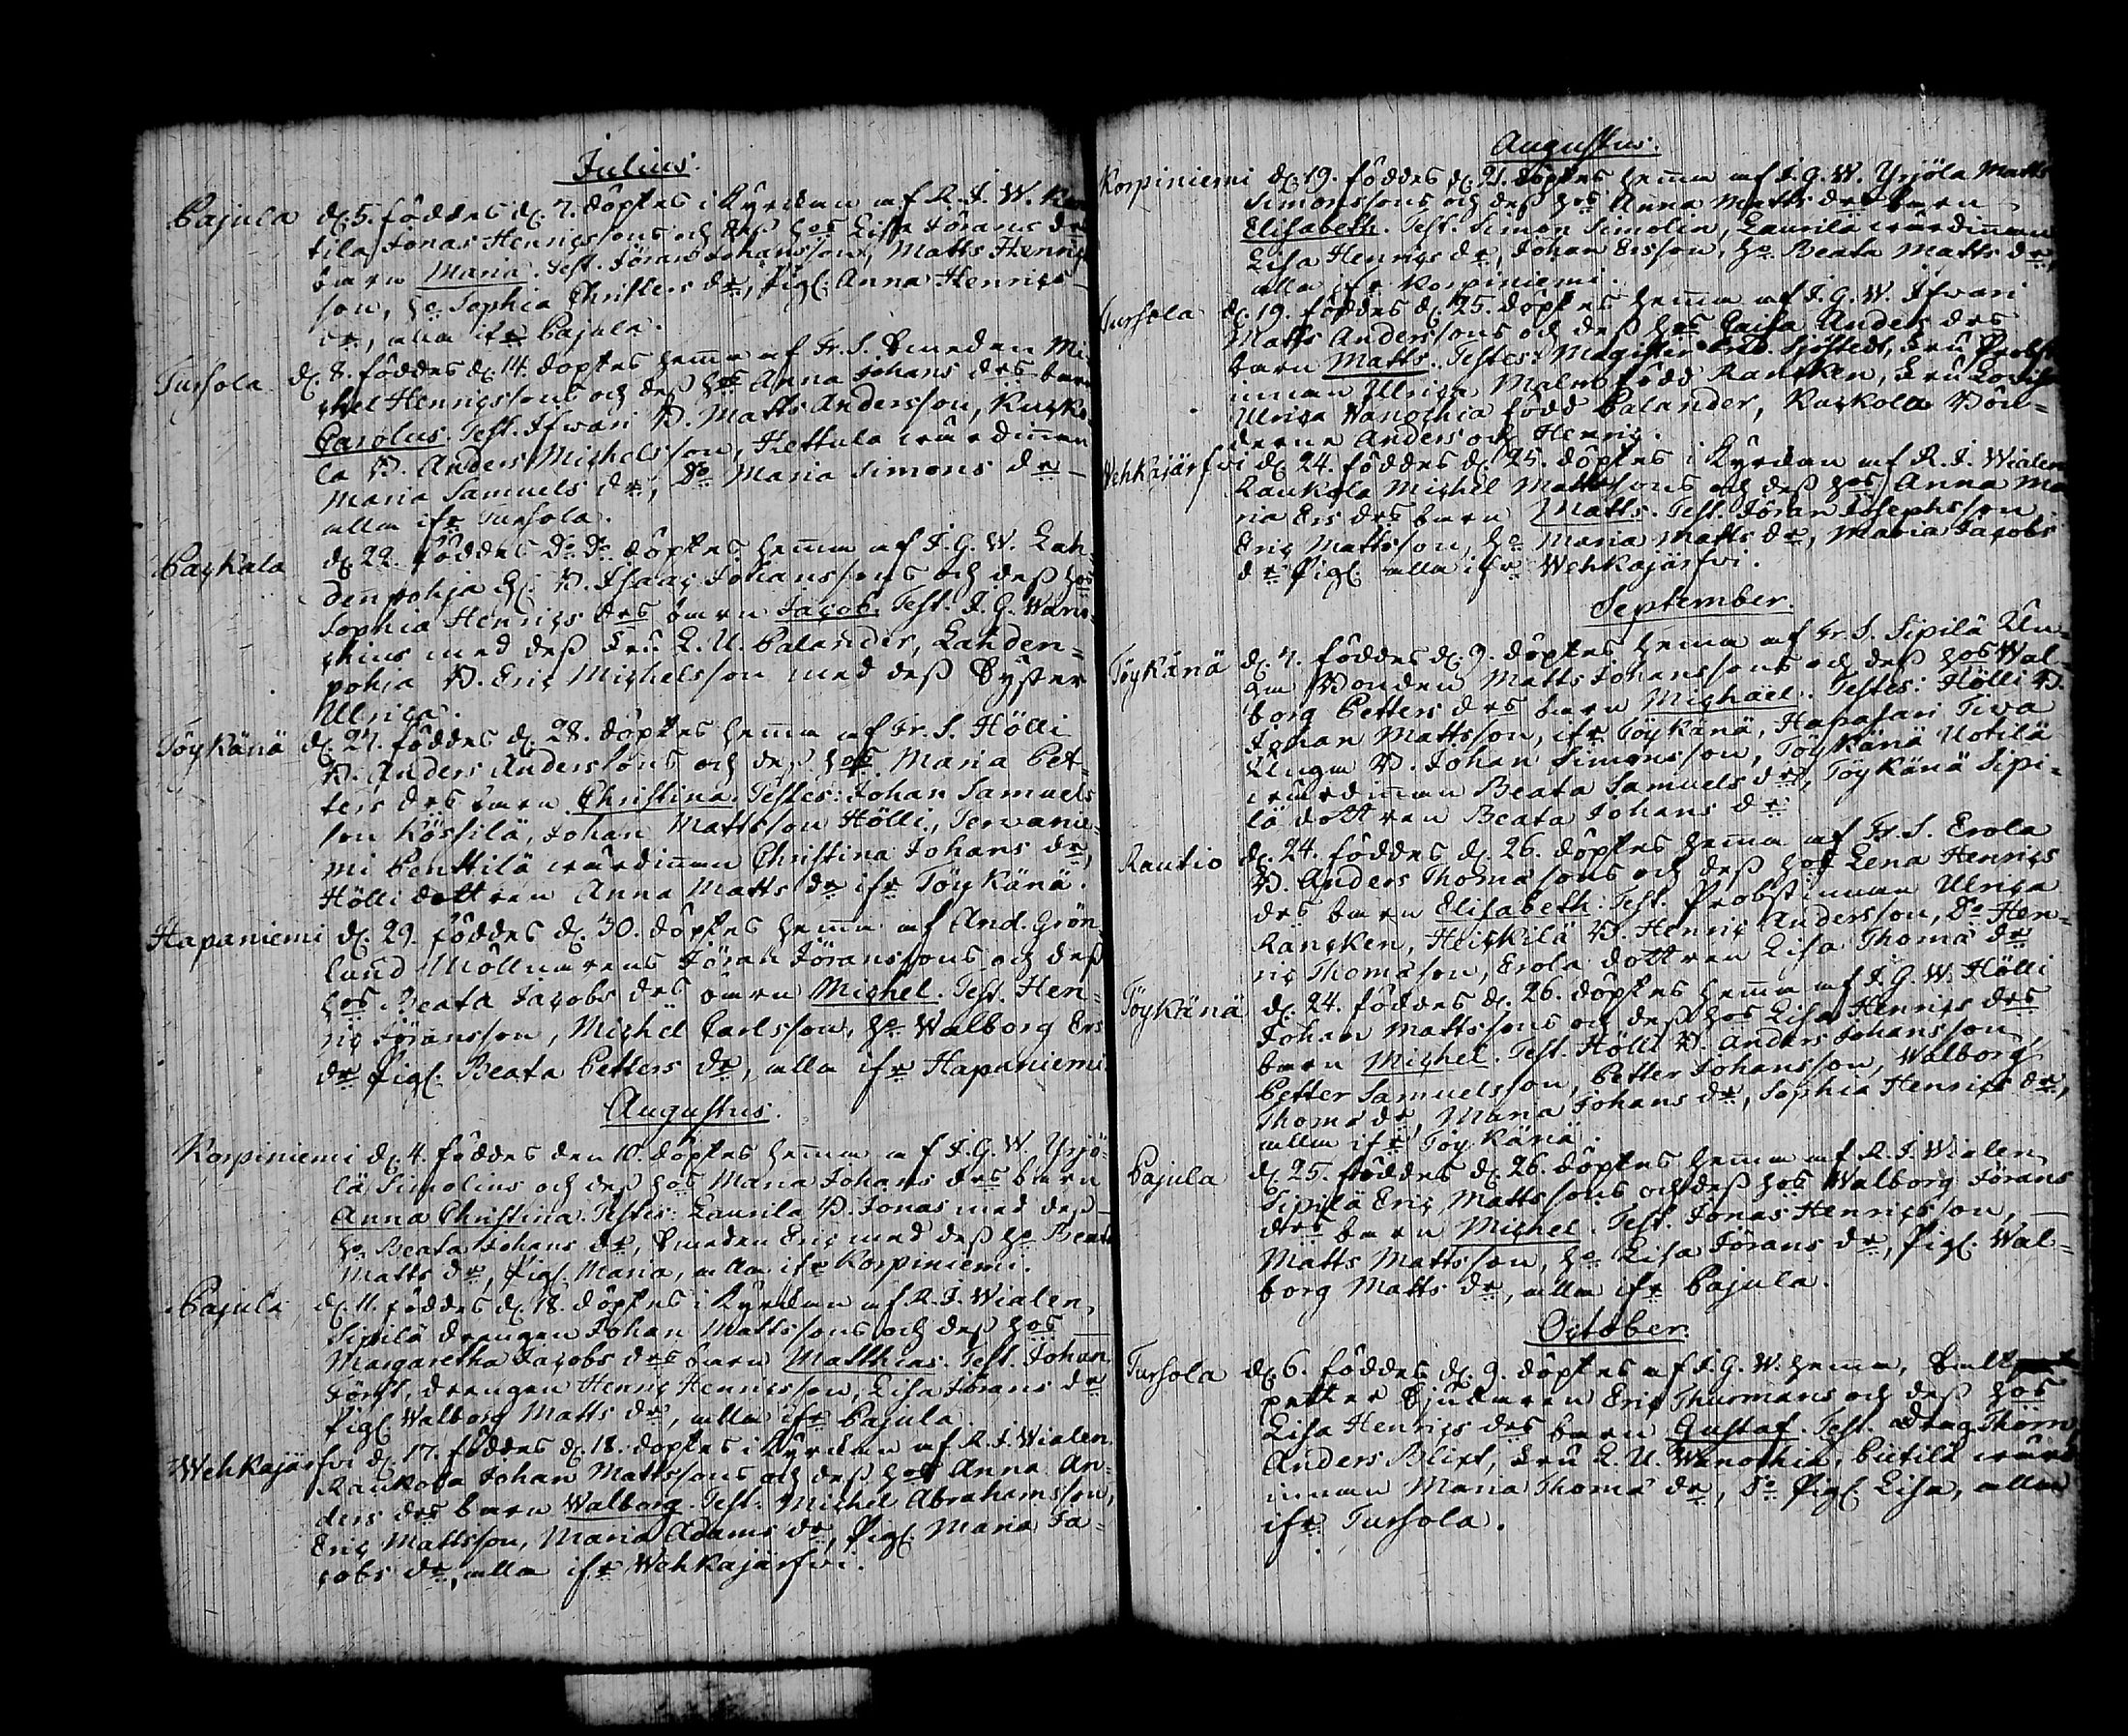 Julius.
Pajula d. 5. föddes d. 7. döptes i Kyrckan af R. J. W.
tila Jonas Henrigssons och deß hos Lisa Jörans dr
barn Maria. Test. Jöran Johansson, Matts Henrigs
son, ho Sophia Christers dr, Pig. Anna Henrigs
dr, alla ifr Pajula.
Tursola d. 8. föddes d. 14. döptes hema af Fr. S. Smeden Mi-
chel Henrigssons och deß hos Anna Johans drs barn
Carolus. Test. Ifwari B. Matts Andersson, Kucko-
la B. Anders Michelsson, Kettula wärdinnan
Maria Samuels dr, Do Maria Simons dr
alla ifr Tursola.
Packala d. 22. föddes Do Do döptes hema af J. G. W. Lah-
denpohja B. Isaac Johanssons och deß hos
Sophia Henrigs drs barn Jacob. Test. J. G. Wano-
chius med deß Fru L. U. Palander, Lahden=
pohja B. Eric Michelsson med deß Syster
Ulrica.
Töykänä d. 27. föddes d. 28. döptes hema af Fr. S. Hölli
B. Anders Anderssons och deß hos Maria Pet-
ters drs barn Christina. Testes: Johan Samuels
son Kössilä, Johan Mattsson Hölli, Terwanie-
mi Penttilä wärdinnan Christina Johans dr,
Hölli dottren Anna Matts dr ifr Töykänä.
Hapaniemi d. 29. föddes d. 30. döptes hema af And. Grön
lund Möllnarens Jöran Jöranssons och deß
hos Beata Jacobs drs barn Michel. Test. Hen-
ric Jöransson, Michel Carlsson, ho Walborg Ers
dr Pig. Beata Petters dr, alla ifr Hapaniemi
Augustus.
Korpiniemi d. 4. föddes den 10. döptes hema af J. G. W. Yrjö-
lä Simolins och deß hos Maria Johans drs barn
Anna Christina. Testes: Laurila B. Jonas med deß
ho Beata Johans dr, Smeden Eric med deß ho Beata
Matts dr, Pig. Maria, alla ifr Korpiniemi.
Pajula d. 11. föddes d. 18. döptes i Kyrckan af R. J. Wialen,
Sipilä drengen Johan Mattssons och deß hos
Margaretha Jacobs drs barn Matthias. Test. Johan
drengen Henric Henricsson, Lisa Jörans dr
Pig. Walborg Matts dr, alla ifr Pajula
Wehkajärfvi d. 17. föddes d. 18. döptes i Kyrckan af R. J. Wialen.
Raukola Johan Mattssons och deß hos Anna An-
ders drs barn Walborg. Test. Michel Abrahamsson,
Eric Mattsson, Maria Adams dr, Pig. Maria Ja-
cobs dr, alla ifr Wehkajärfvi.
Augustus.
Korpiniemi d. 19. föddes d. 21. döptes hema af J. G. W. Yrjöla Matts
Simonssons och deß hos Anna Matts drs barn
Elisabeth. Test. Simon Simolin, Laurilä wärdinnan
Lisa Henrigs dr, Johan Ersson, ho Beata Matts dr,
alla ifr Korpiniemi.
Tursola d. 19. föddes d. 25. döptes hema af J. G. W. Ifwari
Matts Anderssons och deß hos Caisa Anders drs
barn Matts. Testes: Magister Sjöstedt, Fru Probst
innan Ulrica Malm född Rancken, Fru Lovisa
Ulrica Wanochia född Palander, Kuckola Bön-
derna Anders och Henric.
Wehkajärfvi d. 24. föddes d. 25. döptes i Kyrckan af R. J. Wialen
Raukola Michel Mattssons och deß hos Anna Ma
ria Ers drs barn Matts. Test. Jöran Josephsson
Eric Mattsson, ho Maria Matts dr, Maria Jacobs
dr Pig. alla ifr Wehkajärfvi.
September.
Töykänä d. 7. föddes d. 9. döptes hema af Fr. S. Sipilä Un-
ga Bonden Matts Johanssons och deß hos Wal-
borg Petters drs barn Michael. Testes: Hölli B.
Johan Mattsson, ifr Töykänä, Hapasari Tiva
Unga B. Johan Simonsson, Töykänä Uotilä
wärdinnan Beata Samuels dr, Töykänä Sipi-
lä dottren Beata Johans dr.
Rautio d. 24. föddes d. 26. döptes hema af Fr. S. Erola
B. Anders Thomasons och deß hos Lena Henrigs
drs barn Elisabeth. Test. Probstinnan Ulrica
Rancken, Heickilä B. Henric Andersson, Do Hen-
ric Thomason, Erola dottren Lisa Thomä dr
Töykänä d. 24. föddes d. 26. döptes hema af J. G. W. Hölli
Johan Mattssons och deß hos Lisa Henrigs drs
barn Michel. Test. Hölli B. Anders Johansson,
Petter Samuelsson, Petter Johansson, Walborg
Thomä dr, Maria Johans dr, Sophia Henrigs dr,
alla ifr Töykänä.
Pajula d. 25. föddes d. 26. döptes hema af R. J. Wialen,
Sipilä Eric Mattssons och deß hos Walborg Jörans
drs barn Michel. Test. Jonas Henricsson,
Matts Mattsson, ho Lisa Jörans dr, Pig. Wal=
borg Matts dr, alla ifr Pajula.
October.
Tursola d. 6. föddes d. 9. döptes af J. G. W. hema,
Eric Thurmans och deß hos
Lisa Henrigs drs barn Gustaf. Test. Dräg Thorn
Anders Blixt, Fru L. U. Wanochia, Pietilä wärd
innan Maria Thomä dr, Do Pig. Lisa, alla
ifr Tursola.